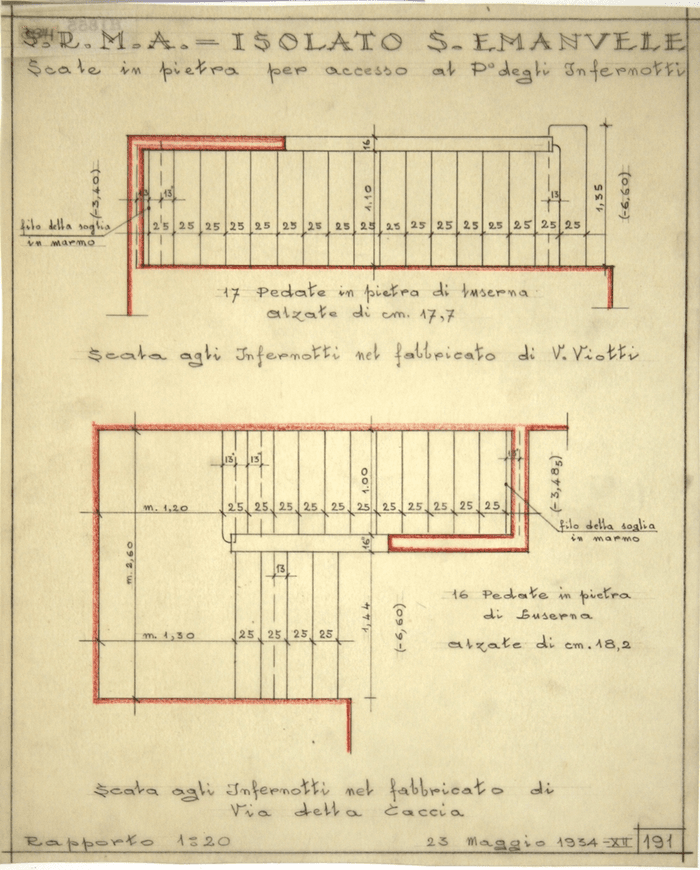 S.R.M.A. = ISOLATO S. EMANVELE
Scale in pietra per accesso al P° degli Infernotti
16
(-3,40)
13
13
1.10
13
1,35
(-6.60)
filo della soglia
in marmo
25 25 25 25 25 25 25 25 25 25 25 25 25 25 25 25 25
17 Pedate in pietra di Luserna
alzate di cm. 17,7
Scala agli Infernotti nel fabbricato di V. Viotti
13
13
1.00
13
(-3,485)
m. 1,20
25 25 25 25 25 25 25 25 25 25 25
filo della soglia
in marmo
16
m. 2,60
13
16 Pedate in pietra
di Luserna
alzate di cm. 18,2
1,44
(-6,60)
m. 1,30
25 25 25 25
Scala agli Infernotti nel fabbricato di
Via della Caccia
Rapporto 1:20
23 Maggio 1934-XII
191